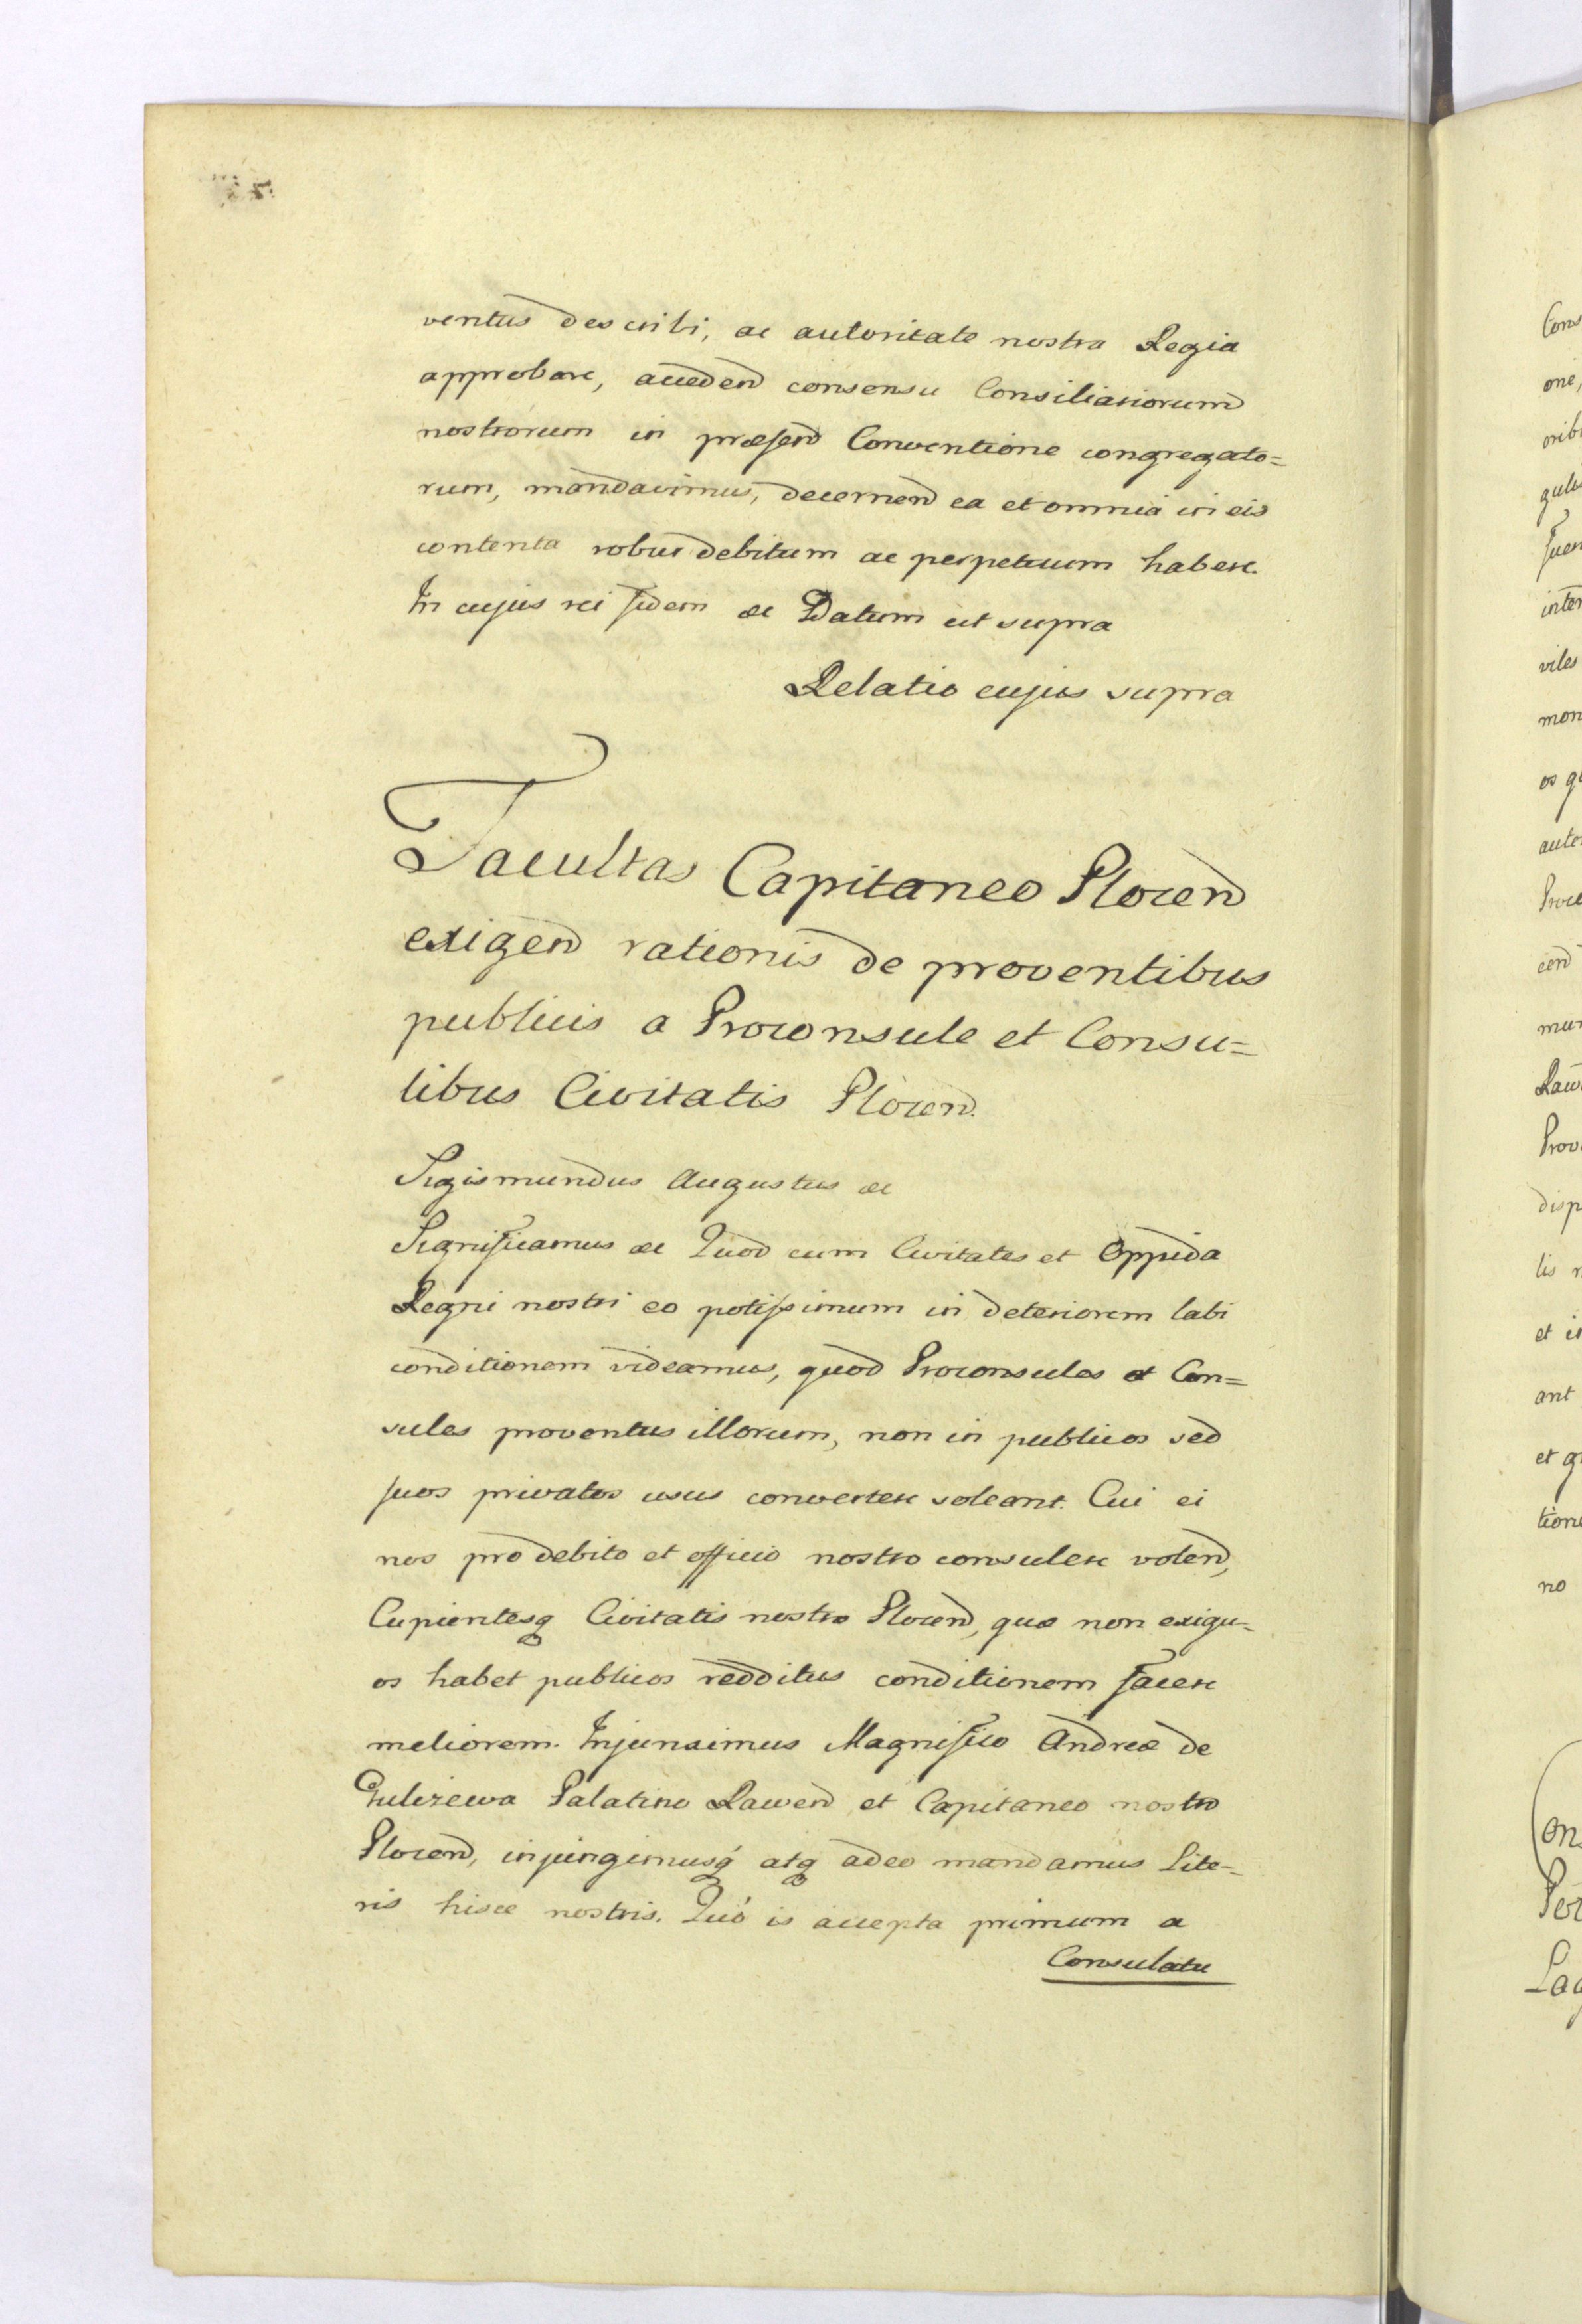 ventus describi, ac autoritate nostra Regia
approbare, acceden consensu Consiliariorum
nostrorum in præsen Conventione congregato=
rum, mandavimus, decernen ea et omnia in eis
contenta robur debitum ac perpetuum habere.
In cujus rei fidem &c Datum ut supra
Relatio cujus supra
Facultas Capitaneo Plocen
exigen rationis de proventibus
publicis a Proconsule et Consu=
libus Civitatis Plocen.
Sigismundus Augustus &c
Significamus &c Quod cum Civitates et Oppida
Regni nostri eo potissimum in deteriorem labi
conditionem videamus, quod Proconsules et Con=
sules proventus illorum, non in publicos sed
suos privatos usus convertere soleant. Cui ei
nos pro debito et officio nostro consulere volen,
Cupientesq Civitatis nostræ Plocen, quæ non exigu=
os habet publicos redditus conditionem facere
meliorem. Injunximus Magnifico Andreæ de
Gulczewa Palatino Rawen et Capitaneo nostro
Plocen, injungimusq atq adeo mandamus Lite=
ris hisce nostris. Quó is accepta primum a
Consulatu
Cons
one,
orib
inter
viles
mon
os q
auto
cen
mun
Raw
Prov
disp
lis
et i
ant
et q
tione
no